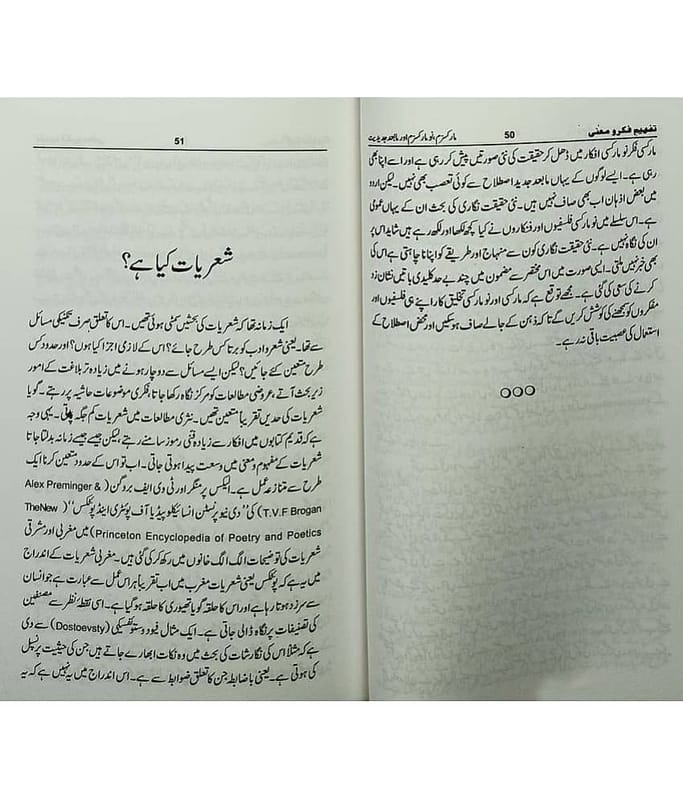 تفہیم فکر و معنی 50 مارکسزم، نو مارکسزم اور مابعد جدیدیت
مارکسی فکر نو مارکسی افکار میں ڈھل کر حقیقت کی نئی صورتیں پیش کر رہی ہے اور اسے اپنا بھی
رہی ہے۔ ایسے لوگوں کے یہاں مابعد جدید اصطلاح سے کوئی تعصب بھی نہیں۔ لیکن اردو
میں بعض اذہان اب بھی صاف نہیں ہیں۔ نئی حقیقت نگاری کی بحث ان کے یہاں عمومی
ہے۔ اس سلسلے میں نو مارکسی فلسفیوں اور فنکاروں نے کیا کچھ لکھا اور لکھ رہے ہیں شاید اس پر
ان کی نگاہ نہیں ہے۔ نئی حقیقت نگاری کون سے منہاج اور طریقے کو اپنانا چاہتی ہے اس کی
بھی خبر نہیں ملتی۔ ایسی صورت میں اس مختصر سے مضمون میں چند بے حد کلیدی باتیں نشان زد
کرنے کی سعی کی گئی ہے۔ مجھے توقع ہے کہ مارکسی اور نو مارکسی تخلیق کار اپنے ہی فلسفیوں اور
مفکروں کو سمجھنے کی کوشش کریں گے تاکہ ذہن کے جالے صاف ہو سکیں اور محض اصطلاح کے
استعمال کی عصبیت باقی نہ رہے۔
51
شعریات کیا ہے؟
ایک زمانہ تھا کہ شعریات کی بحثیں سمٹی ہوئی تھیں۔ اس کا تعلق صرف تکنیکی مسائل
سے تھا۔ یعنی شعر و ادب کو برتا کس طرح جائے؟ اس کے لازمی اجزا کیا ہوں؟ اور حدود کس
طرح متعین کئے جائیں؟ لیکن ایسے مسائل سے دوچار ہونے میں زیادہ تر بلاغت کے امور
زیر بحث آتے، عروضی مطالعات کو مرکز نگاہ رکھا جاتا، فکری موضوعات حاشیہ پر رہتے۔ گویا
شعریات کی حدیں تقریباً متعین تھیں۔ نثری مطالعات میں شعریات کم جگہ پاتی۔ یہی وجہ
ہے کہ قدیم کتابوں میں افکار سے زیادہ فنی رموز سامنے رہتے لیکن جیسے جیسے زمانہ بدلتا جاتا
شعریات کے مفہوم و معنی میں وسعت پیدا ہوتی جاتی۔ اب تو اس کے حدود متعین کرنا ایک
طرح سے متنازعہ عمل ہے۔ الیکس پرمنگر اور ٹی دی ایف بروگن (Alex Preminger &
T.V.F Brogan) کی "دی نیو پرنسٹن انسائیکلوپیڈیا آف پوئٹری اینڈ پوئٹکس" (TheNew
Princeton Encyclopedia of Poetry and Poetics) میں مغربی اور مشرقی
شعریات کی توضیحات الگ الگ خانوں میں رکھ کر کی گئی ہیں۔ مغربی شعریات کے اندراج
میں یہ ہے کہ پوئٹکس یعنی شعریات مغرب میں اب تقریباً ہر اس عمل سے عبارت ہے جو انسان
سے سرزد ہوتا رہا ہے اور اس کا حلقہ گویا تھیوری کا حلقہ ہو گیا ہے۔ اسی نقطۂ نظر سے مصنفین
کی تصنیفات پر نگاہ ڈالی جاتی ہے۔ ایک مثال فیودو ستوئفسکی (Dostoevsty) سے دی
ہے کہ مثلاً اس کی نگارشات کی بحث میں وہ نکات ابھارے جاتے ہیں جن کی حیثیت پرنسپل
کی ہوتی ہے۔ یعنی باضابطہ جن کا تعلق ضوابط سے ہے۔ اس اندراج میں یہ نہیں ہے کہ یہ